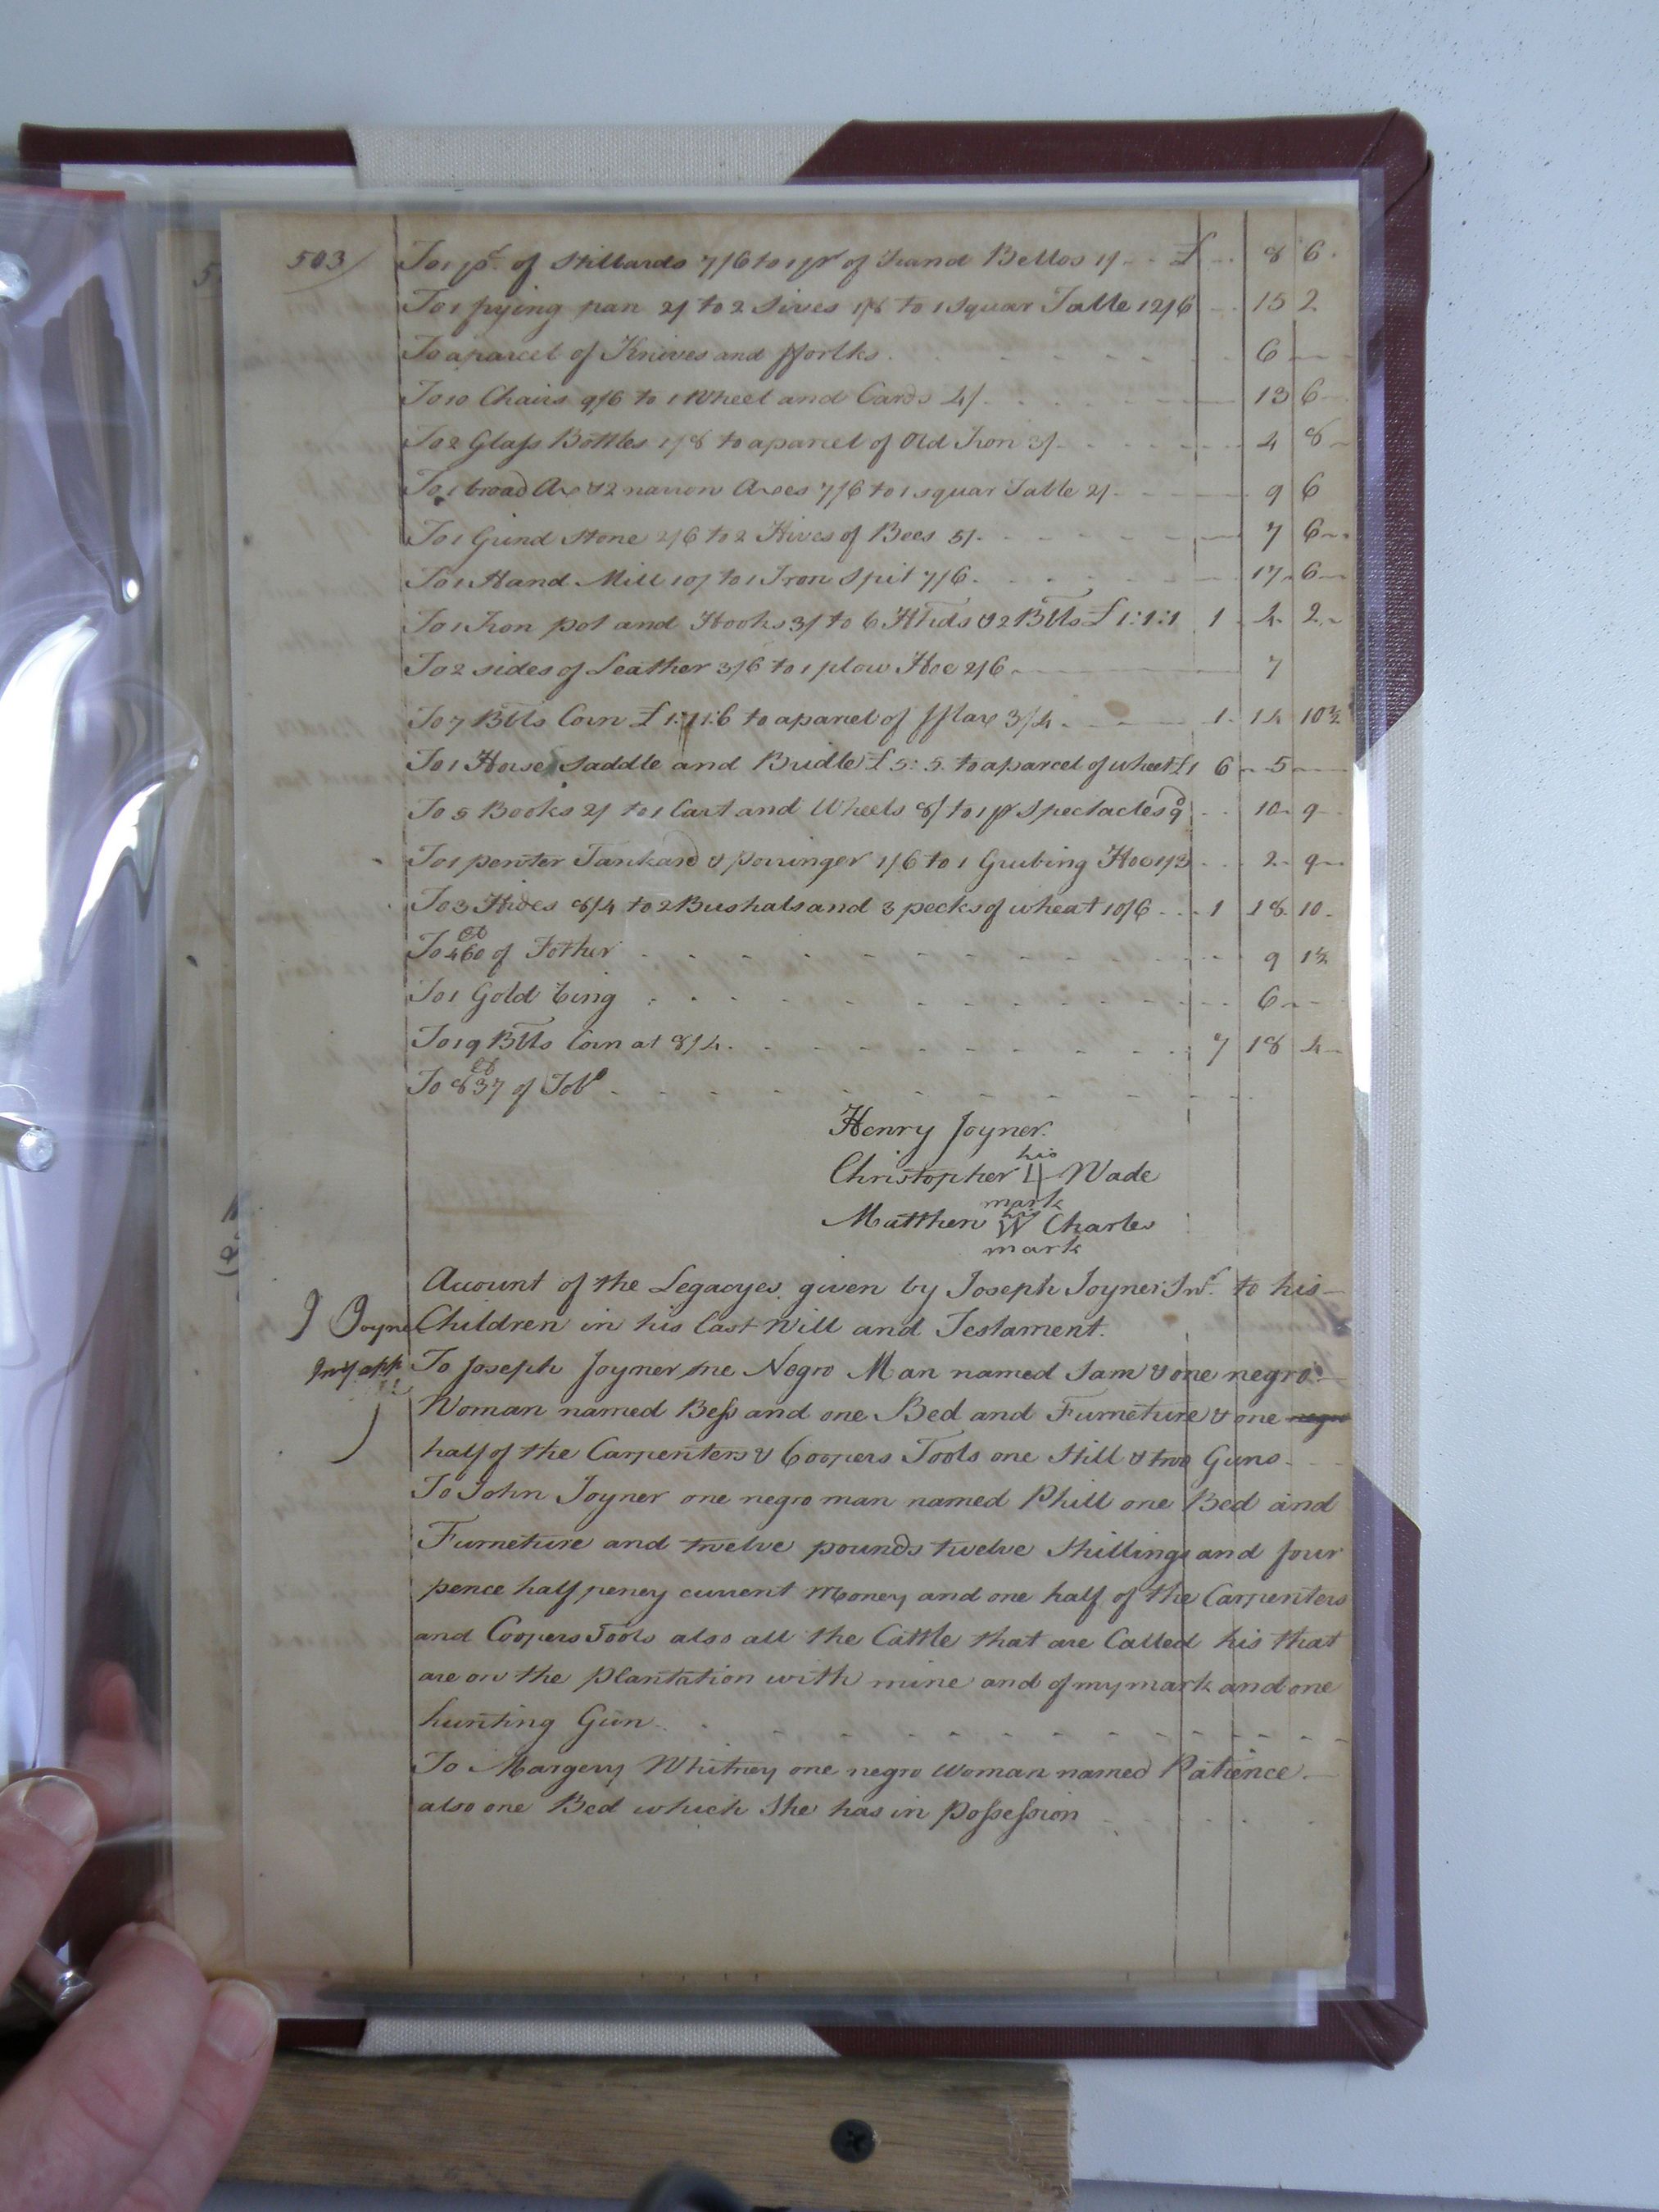 503/
To 1 pr. of Stillards 7/6 to 1 pr of hand Bellos 1/ - - £ - - 8 6
To 1 frying pan 2/ to 2 Sives 1/8 to 1 Squar Table 12/6 - - 15 2
To a parcel of Knives and fforks - - - 6
To 10 Chairs 9/6 to 1 Wheel and Cards 4/ - - - 13 6
To 2 Glass Bottles 1/8 to a parcel of Old Iron 3/ - - - 4 8
To 1 broad Ax & 2 narrow Axes 7/6 to 1 squar Table 2/ - - - 9 6
To 1 Grind Stone 2/6 to 2 Hives of Bees 5/ - - - 7 6
To 1 Hand Mill 10/ to 1 Iron Spit 7/6 - - - 17 6
To 1 Iron pot and Hooks 3/ to 6 Hhds & 2 Blls £1:1:1 1 4 2
To 2 sides of Leather 3/6 to 1 plow Hoe 2/6 - - - 7
To 7 Blls Corn £1:11:6 to a parcel of fflax 3/4 - - - 1 14 10½
To 1 Horse Saddle and Bridle £5:5 to a parcel of wheat £1 6 5
To 5 Books 2/ to 1 Cart and Wheels 8/ to 1 pr Spectacles 9d - - 10 9
To 1 pewter Tankard & porringer 1/6 to 1 Grubing Hoe 1/3 - - 2 9
To 3 Hides 8/4 to 2 Bushals and 3 pecks of wheat 10/6 - - 1 18 10
To 460 lb of Fother - - - 9 1½
To 1 Gold - - - 6
To 19 Blls Corn at 8/4 - - - 7 18 4
To 837 lb of Tobo - - -
Henry Joyner
his
Christopher Wade
mark
his
Matthew W Charles
mark
Account of the Legacyes given by Joseph Joyner to his
J Joyner Children in his Last Will and Testament.
To Joseph Joyner one Negro Man named Sam & one negro
Woman named Bess and one Bed and Furneture & one negro
half of the Carpenters & Coopers Tools one Still & two Guns
To John Joyner one negro man named Phill one Bed and
Furneture and twelve pounds twelve Shillings and four
pence half peney current Money and one half of the Carpenters
and Coopers Tools also all the Cattle that are Called his that
are on the plantation with mine and of my mark and one
hunting Gun
To Margery Whitney one negro woman named Patience
also one Bed which She has in possession